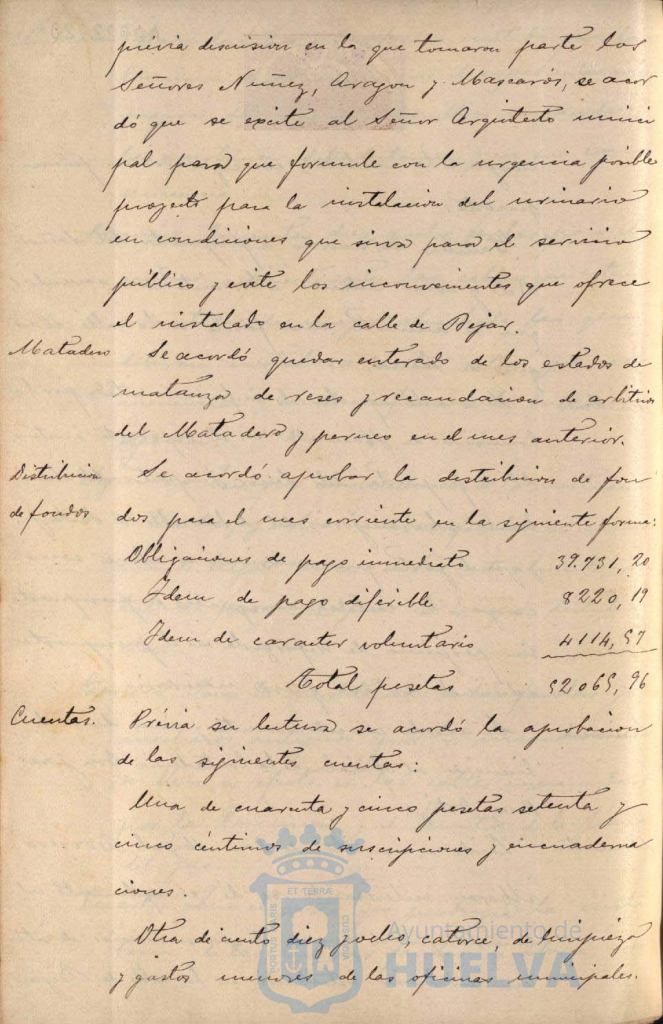 prévia discusion en la que tomaron parte los
Señores Nuñez, Aragon y Mascarós, se acor
dó que se excite al Señor Arquitecto munici
pal para que formule con la urgencia posible
proyecto para la instalacion del urinario
en condiciones que sirva para el servicio
público y evite los inconvenientes que ofrece
el instalado en la calle de Bejar.
Matadero
Se acordó quedar enterado de los estados de
matanza de reses y recaudacion de arbitrios
del Matadero y perneo en el mes anterior.
Distribucion
de fondos
Se acordó aprobar la distribucion de fon
dos para el mes corriente en la siguiente forma:
Obligaciones de pago inmediato 39.731,20
Idem de pago diferible 8220,19
Idem de caracter voluntario 4114,57
Total pesetas 52.065,96
Cuentas.
Prévia su lectura se acordó la aprobacion
de las siguientes cuentas:
Una de cuarenta y cinco pesetas setenta y
cinco céntimos de suscripciones y encuaderna
ciones.
Otra de ciento diez y ocho, catorce, de limpieza
y gastos menores de las oficinas municipales.
Ayuntamiento de
HUELVA
ET TERRÆ
PORTUS MARIS
CUSTODIA